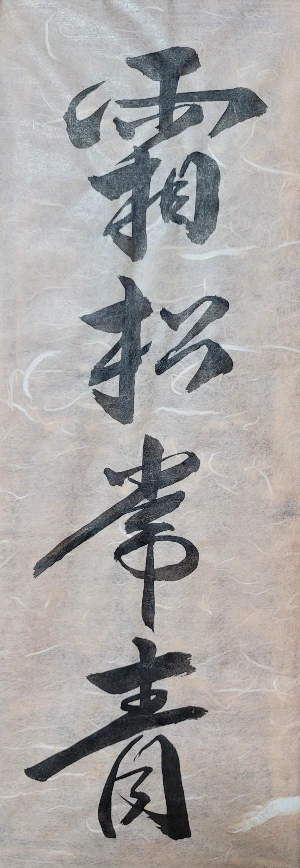 霜松常青